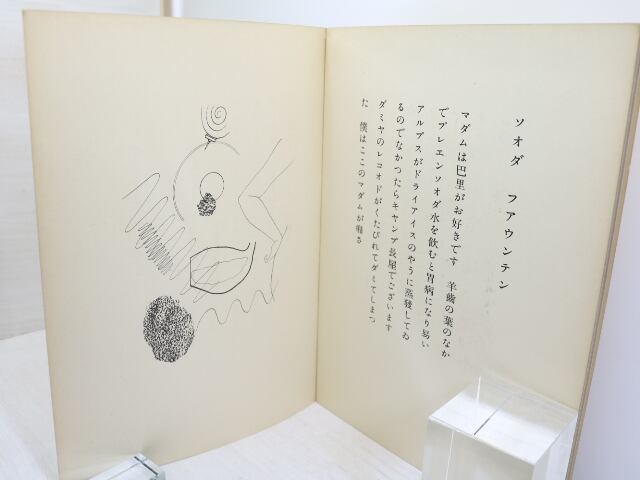 ソオダ フアウンテン
マダムは巴里がお好きです 羊歯の葉のなか
でプレエンソオダ水を飲むと胃病になり易い
アルプスがドライアイスのやうに蒸發してゐ
るのでなかつたらキヤンプ長屋でございます
ダミヤのレコオドがくたびれてダミてしまつ
た 僕はここのマダムが